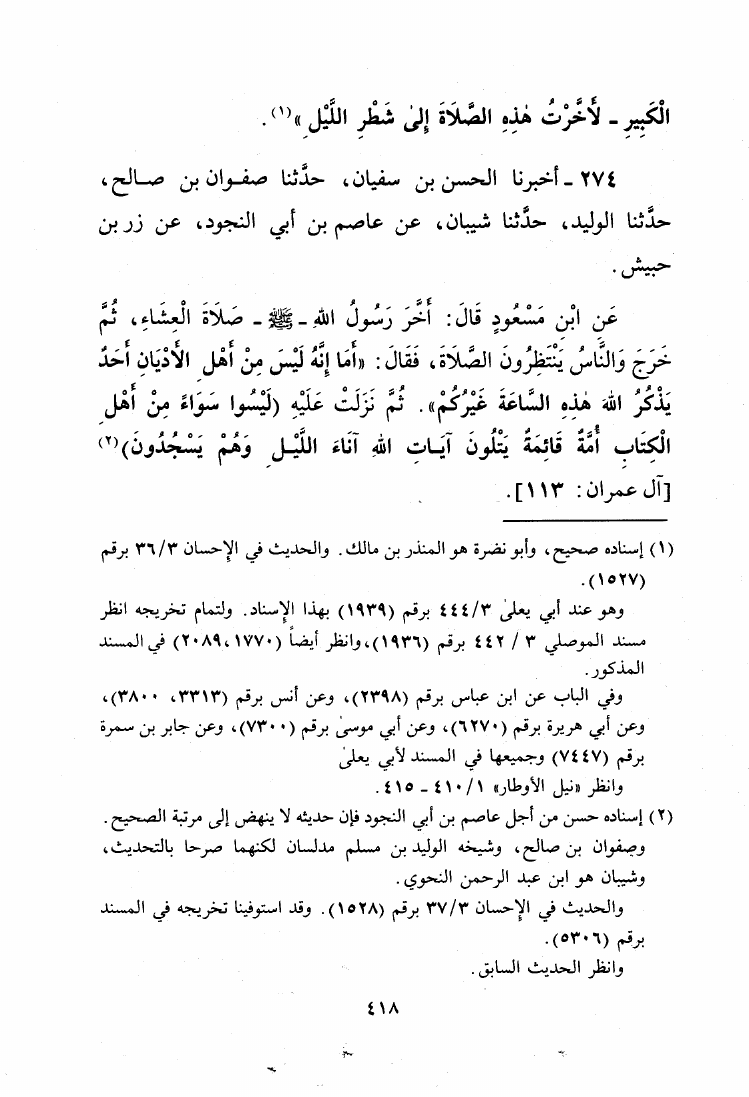 الْكَبِيرِ - لَأَخَّرْتُ هٰذِهِ الصَّلَاةَ إِلىٰ شَطْرِ اللَّيْلِ»(١).
٢٧٤ - أخبرنا الحسن بن سفيان، حدَّثنا صفوان بن صالح،
حدَّثنا الوليد، حدَّثنا شيبان، عن عاصم بن أبي النجود، عن زر بن
حبيش.
عَنِ ابْنِ مَسْعُودٍ قَالَ: أَخَّرَ رَسُولُ اللهِ - ﷺ - صَلَاةَ الْعِشَاءِ، ثُمَّ
خَرَجَ وَالنَّاسُ يَنْتَظِرُونَ الصَّلَاةَ، فَقَالَ: «أَمَا إِنَّهُ لَيْسَ مِنْ أَهْلِ الْأَدْيَانِ أَحَدٌ
يَذْكُرُ اللهَ هٰذِهِ السَّاعَةَ غَيْرُكُمْ». ثُمَّ نَزَلَتْ عَلَيْهِ (لَيْسُوا سَوَاءً مِنْ أَهْلِ
الْكِتَابِ أُمَّةٌ قَائِمَةٌ يَتْلُونَ آيَاتِ اللهِ آنَاءَ اللَّيْلِ وَهُمْ يَسْجُدُونَ)(٢)
[آل عمران: ١١٣].
(١) إسناده صحيح، وأبو نضرة هو المنذر بن مالك. والحديث في الإحسان ٣٦/٣ برقم
(١٥٢٧).
وهو عند أبي يعلىٰ ٤٤٤/٣ برقم (١٩٣٩) بهذا الإسناد. ولتمام تخريجه انظر
مسند الموصلي ٣ / ٤٤٢ برقم (١٩٣٦)، وانظر أيضاً (١٧٧٠، ٢٠٨٩) في المسند
المذكور.
وفي الباب عن ابن عباس برقم (٢٣٩٨)، وعن أنس برقم (٣٣١٣، ٣٨٠٠)،
وعن أبي هريرة برقم (٦٢٧٠)، وعن أبي موسىٰ برقم (٧٣٠٠)، وعن جابر بن سمرة
برقم (٧٤٤٧) وجميعها في المسند لأبي يعلىٰ
وانظر «نيل الأوطار» ٤١٠/١ - ٤١٥.
(٢) إسناده حسن من أجل عاصم بن أبي النجود فإن حديثه لا ينهض إلى مرتبة الصحيح.
وصفوان بن صالح، وشيخه الوليد بن مسلم مدلسان لكنهما صرحا بالتحديث،
وشيبان هو ابن عبد الرحمن النحوي.
والحديث في الإحسان ٣٧/٣ برقم (١٥٢٨). وقد استوفينا تخريجه في المسند
برقم (٥٣٠٦).
وانظر الحديث السابق.
٤١٨